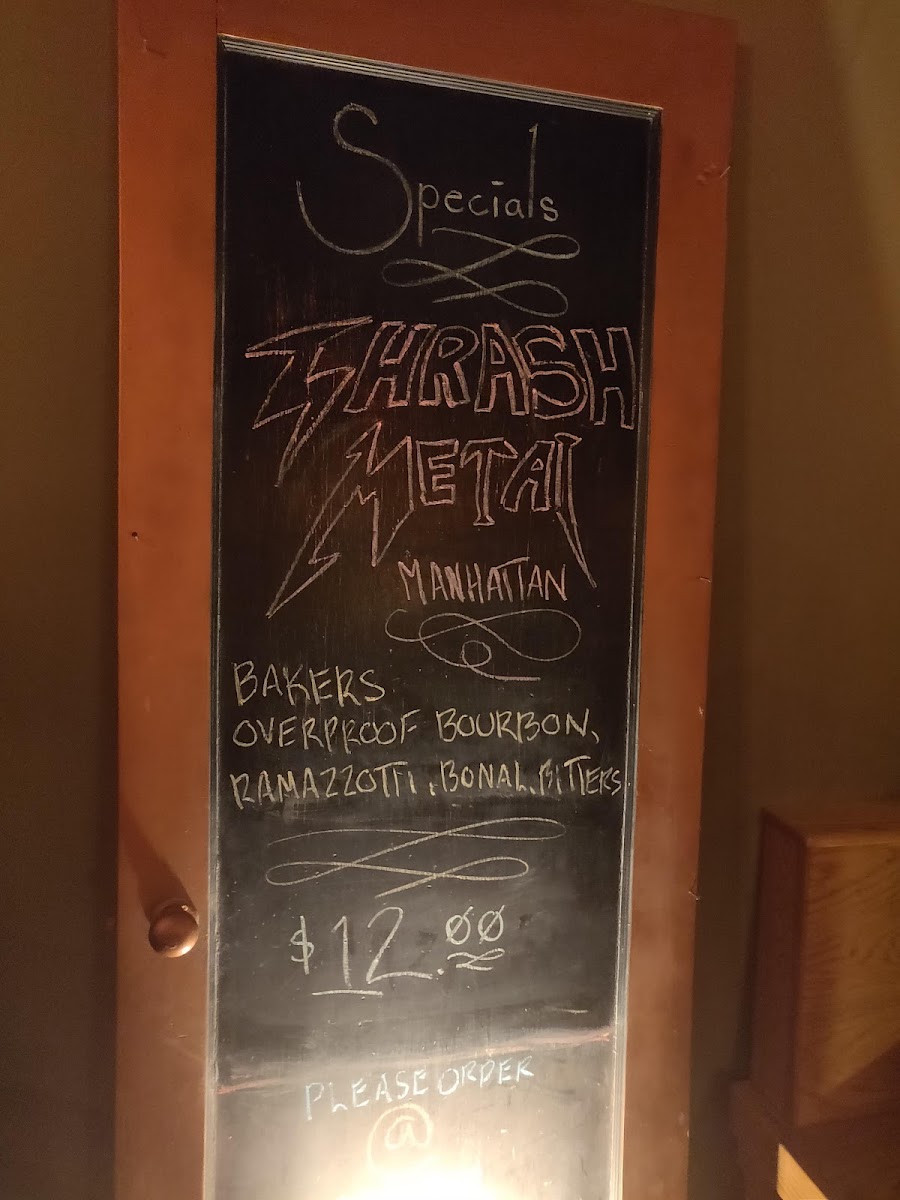 Specials
THRASH
METAL
MANHATTAN
BAKERS
OVERPROOF BOURBON,
RAMAZZOTTI, BONAL, BITTERS
$12.00
PLEASE ORDER
@